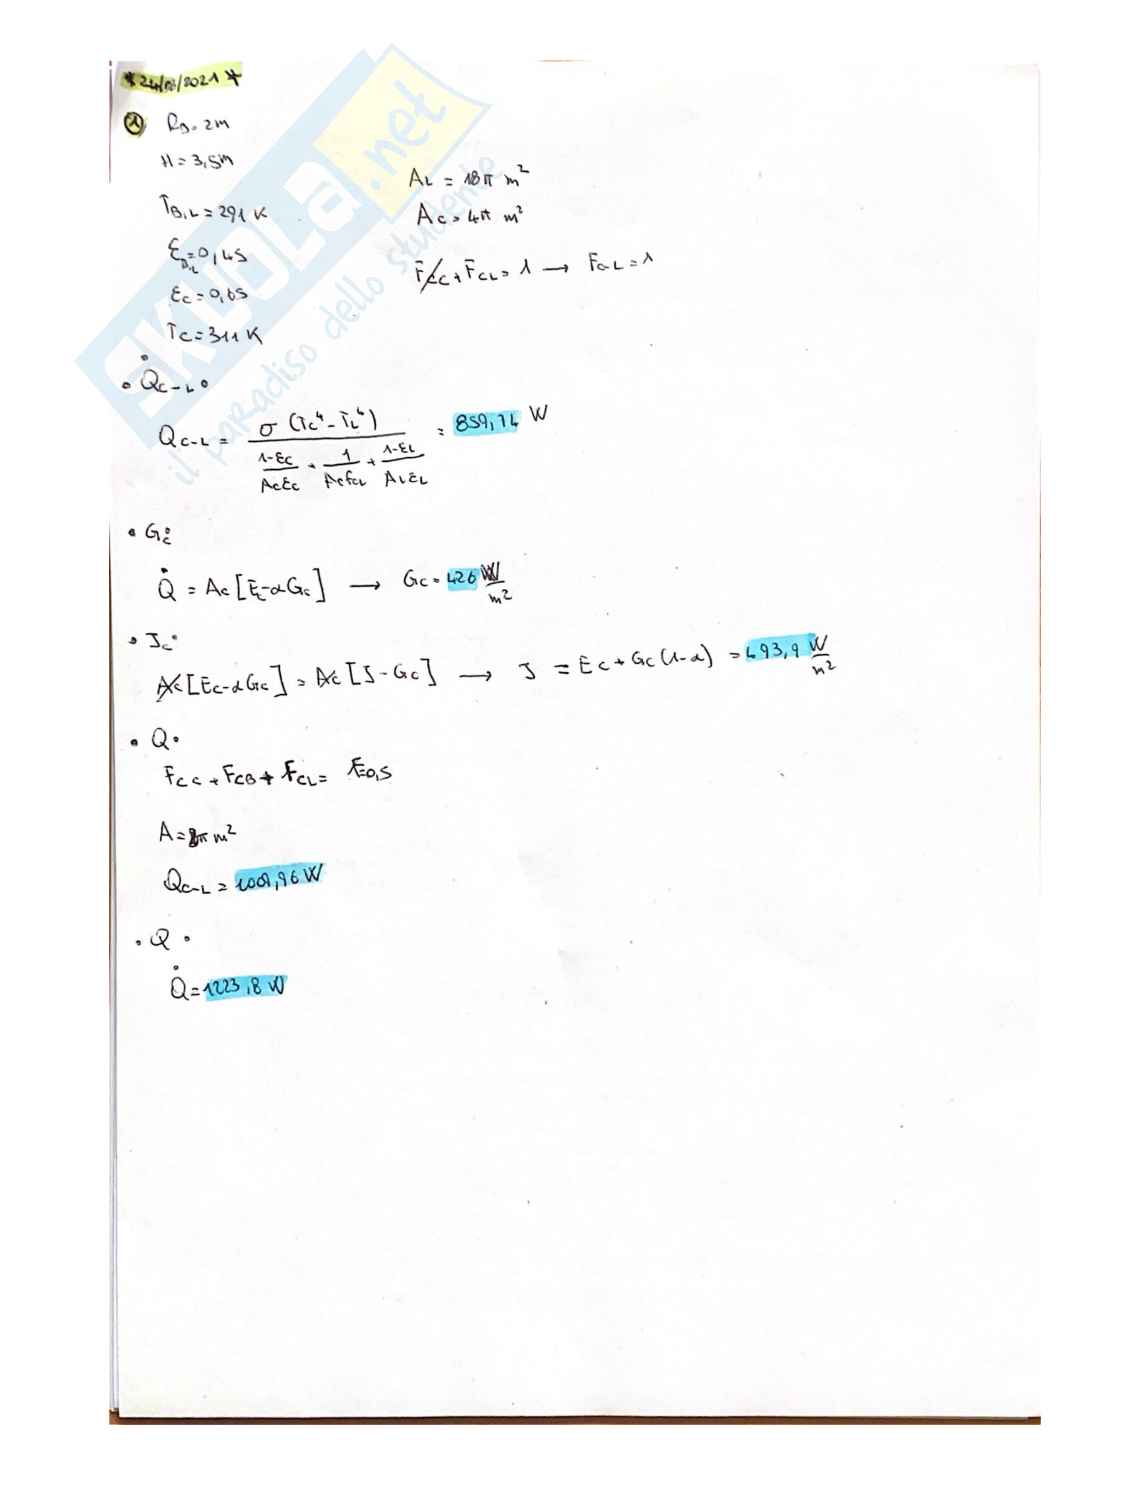 * 24/08/2021 *
1 RB = 2m
H = 3,5m
TB,L = 291 K
AL = 18π m²
AC = 4π m²
εB,L = 0,45
FCC + FCL = 1 → FC-L = 1
εC = 0,65
TC = 311 K
• Q̇C-L •
QC-L = σ (TC⁴ - TL⁴) / (1-εC / ACεC + 1 / ACFCL + 1-εL / ALεL) = 859,74 W
• GC:
Q̇ = AC [EC - αGC] → GC = 426 W/m²
• JC:
AC [EC - αGC] = AC [J - GC] → J = EC + GC (1-α) = 493,9 W/m²
• Q •
FCC + FCB + FCL = F=0,5
A = 8π m²
QC-L = 1009,96 W
• Q •
Q̇ = 1223,8 W
SKUOLA.net
il paradiso dello studente